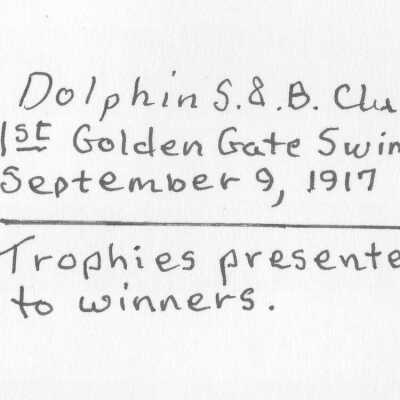 Dolphin S.&.B. Clu
1st Golden Gate Swim
September 9, 1917
Trophies presente
to winners.